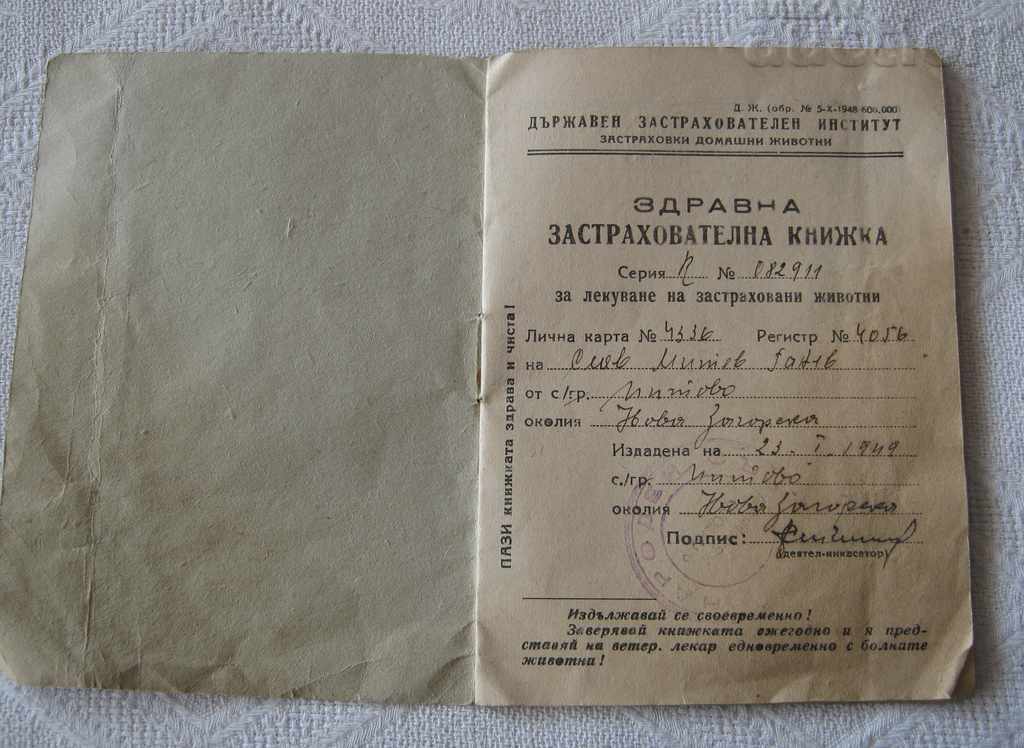 Д. Ж. (обр. № 5-X-1948-600,000)
ДЪРЖАВЕН ЗАСТРАХОВАТЕЛЕН ИНСТИТУТ
ЗАСТРАХОВКИ ДОМАШНИ ЖИВОТНИ
ЗДРАВНА
ЗАСТРАХОВАТЕЛНА КНИЖКА
Серия № 082911
за лекуване на застраховани животни
Лична карта № 4336 Регистр № 4056
на Митев Ганев
от с/гр. Питово
околия Нова Загорска
Издадена на 23. I. 1949
с./гр. Питово
околия Нова Загорска
Подпис:
(деятел-инкасатор)
Издължавай се своевременно!
Заверявай книжката ежегодно и я пред-
ставяй на ветер. лекар едновременно с болните
животни!
ПАЗИ книжката здрава и чиста!